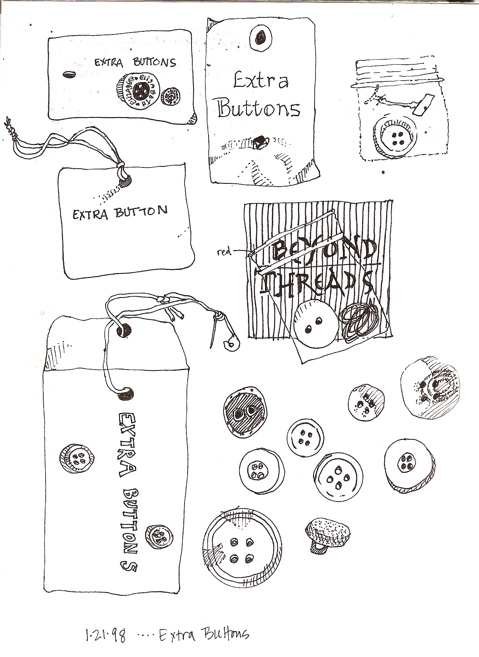 EXTRA BUTTONS
Extra
Buttons
EXTRA BUTTON
red
BEYOND
THREADS
EXTRA BUTTONS
1·21·98 ···· Extra Buttons